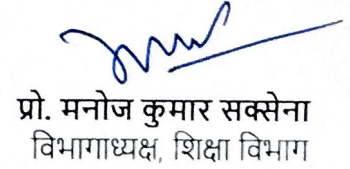 प्रो. मनोज कुमार सक्सेना
विभागाध्यक्ष, शिक्षा विभाग